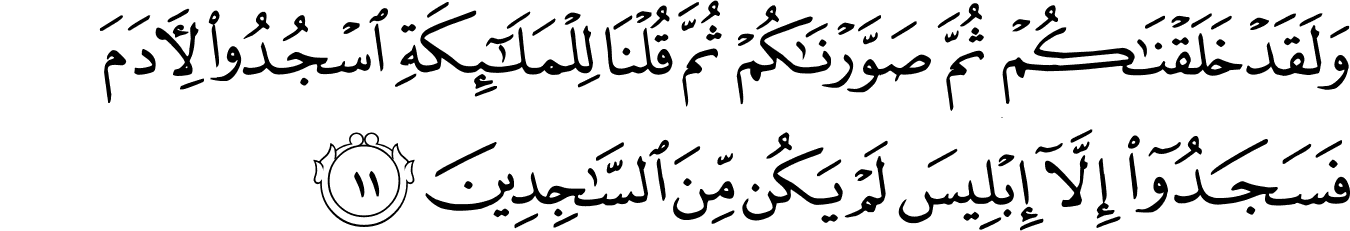 وَلَقَدْ خَلَقْنَٰكُمْ ثُمَّ صَوَّرْنَٰكُمْ ثُمَّ قُلْنَا لِلْمَلَٰٓئِكَةِ ٱسْجُدُوا۟ لِأَدَمَ
فَسَجَدُوٓا۟ إِلَّآ إِبْلِيسَ لَمْ يَكُن مِّنَ ٱلسَّٰجِدِينَ ١١